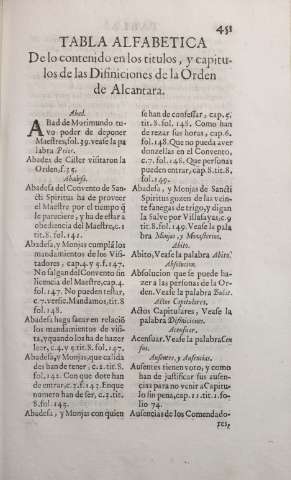 451
TABLA ALFABETICA
De lo contenido en los titulos, y capitu-
los de las Difiniciones de la Orden
de Alcantara.
Abad.
Abad de Morimundo tu-
vo poder de deponer
Maestres, fol. 39. vease la pa
labra Prior.
Abades de Cister visitaron la
Orden, f. 35.
Abadesa.
Abadesa del Convento de San-
cti Spiritus ha de proveer
el Maestre por el tiempo q̃
le pareciere, y ha de estar a
obediencia del Maestre, c. 1
tit. 8. fol. 141.
Abadesa, y Monjas cumplã los
mandamientos de los Visi-
tadores, cap. 4. y 4. f. 147.
No salgan del Convento sin
licencia del Maestre, cap. 4.
fol. 147. No pueden testar,
c. 7. versic. Mandamos, tit. 8
fol. 148.
Abadesa haga sacar en relació
los mandamientos de visi-
ta, y quando los ha de hazer
leer, c. 4. v. 6. tit. 8. fol. 147.
Abadesa, y Monjas, que calida
des han de tener, c. 2. tit. 8.
fol. 142. Con que dote han
de entrar, c. 3. f. 143. En que
numero han de ser, c. 3. tit.
8. fol. 143.
Abadesa, y Monjas con quien
se han de confessar, cap. 5.
tit. 8. fol. 148. Como han
de rezar sus horas, cap. 6.
fol. 148. Que no pueda aver
donzellas en el Convento,
c. 7. fol. 148. Que personas
pueden entrar, cap. 8. tit. 8.
fol. 149.
Abadesa, y Monjas de Sancti
Spiritus gozen de las vein-
te fanegas de trigo, y digan
la Salve por Villasayas, c. 9
tit. 8. fol. 149. Vease la pala
bra Monjas, y Monasterios.
Abito.
Abito, Vease la palabra Abito.
Absolucion.
Absolucion que se puede ha-
zer a las personas de la Or-
den. Vease la palabra Bulas.
Actos Capitulares.
Actos Capitulares, Vease la
palabra Difiniciones.
Acensuar.
Acensuar. Vease la palabra Cen
sos.
Ausentes, y Ausencias.
Ausentes tienen voto, y como
han de justificar sus ausen-
cias para no venir a Capitu-
lo sin pena, cap. 11. tit. 1. fo-
lio 74.
Ausencias de los Comendado-
res,